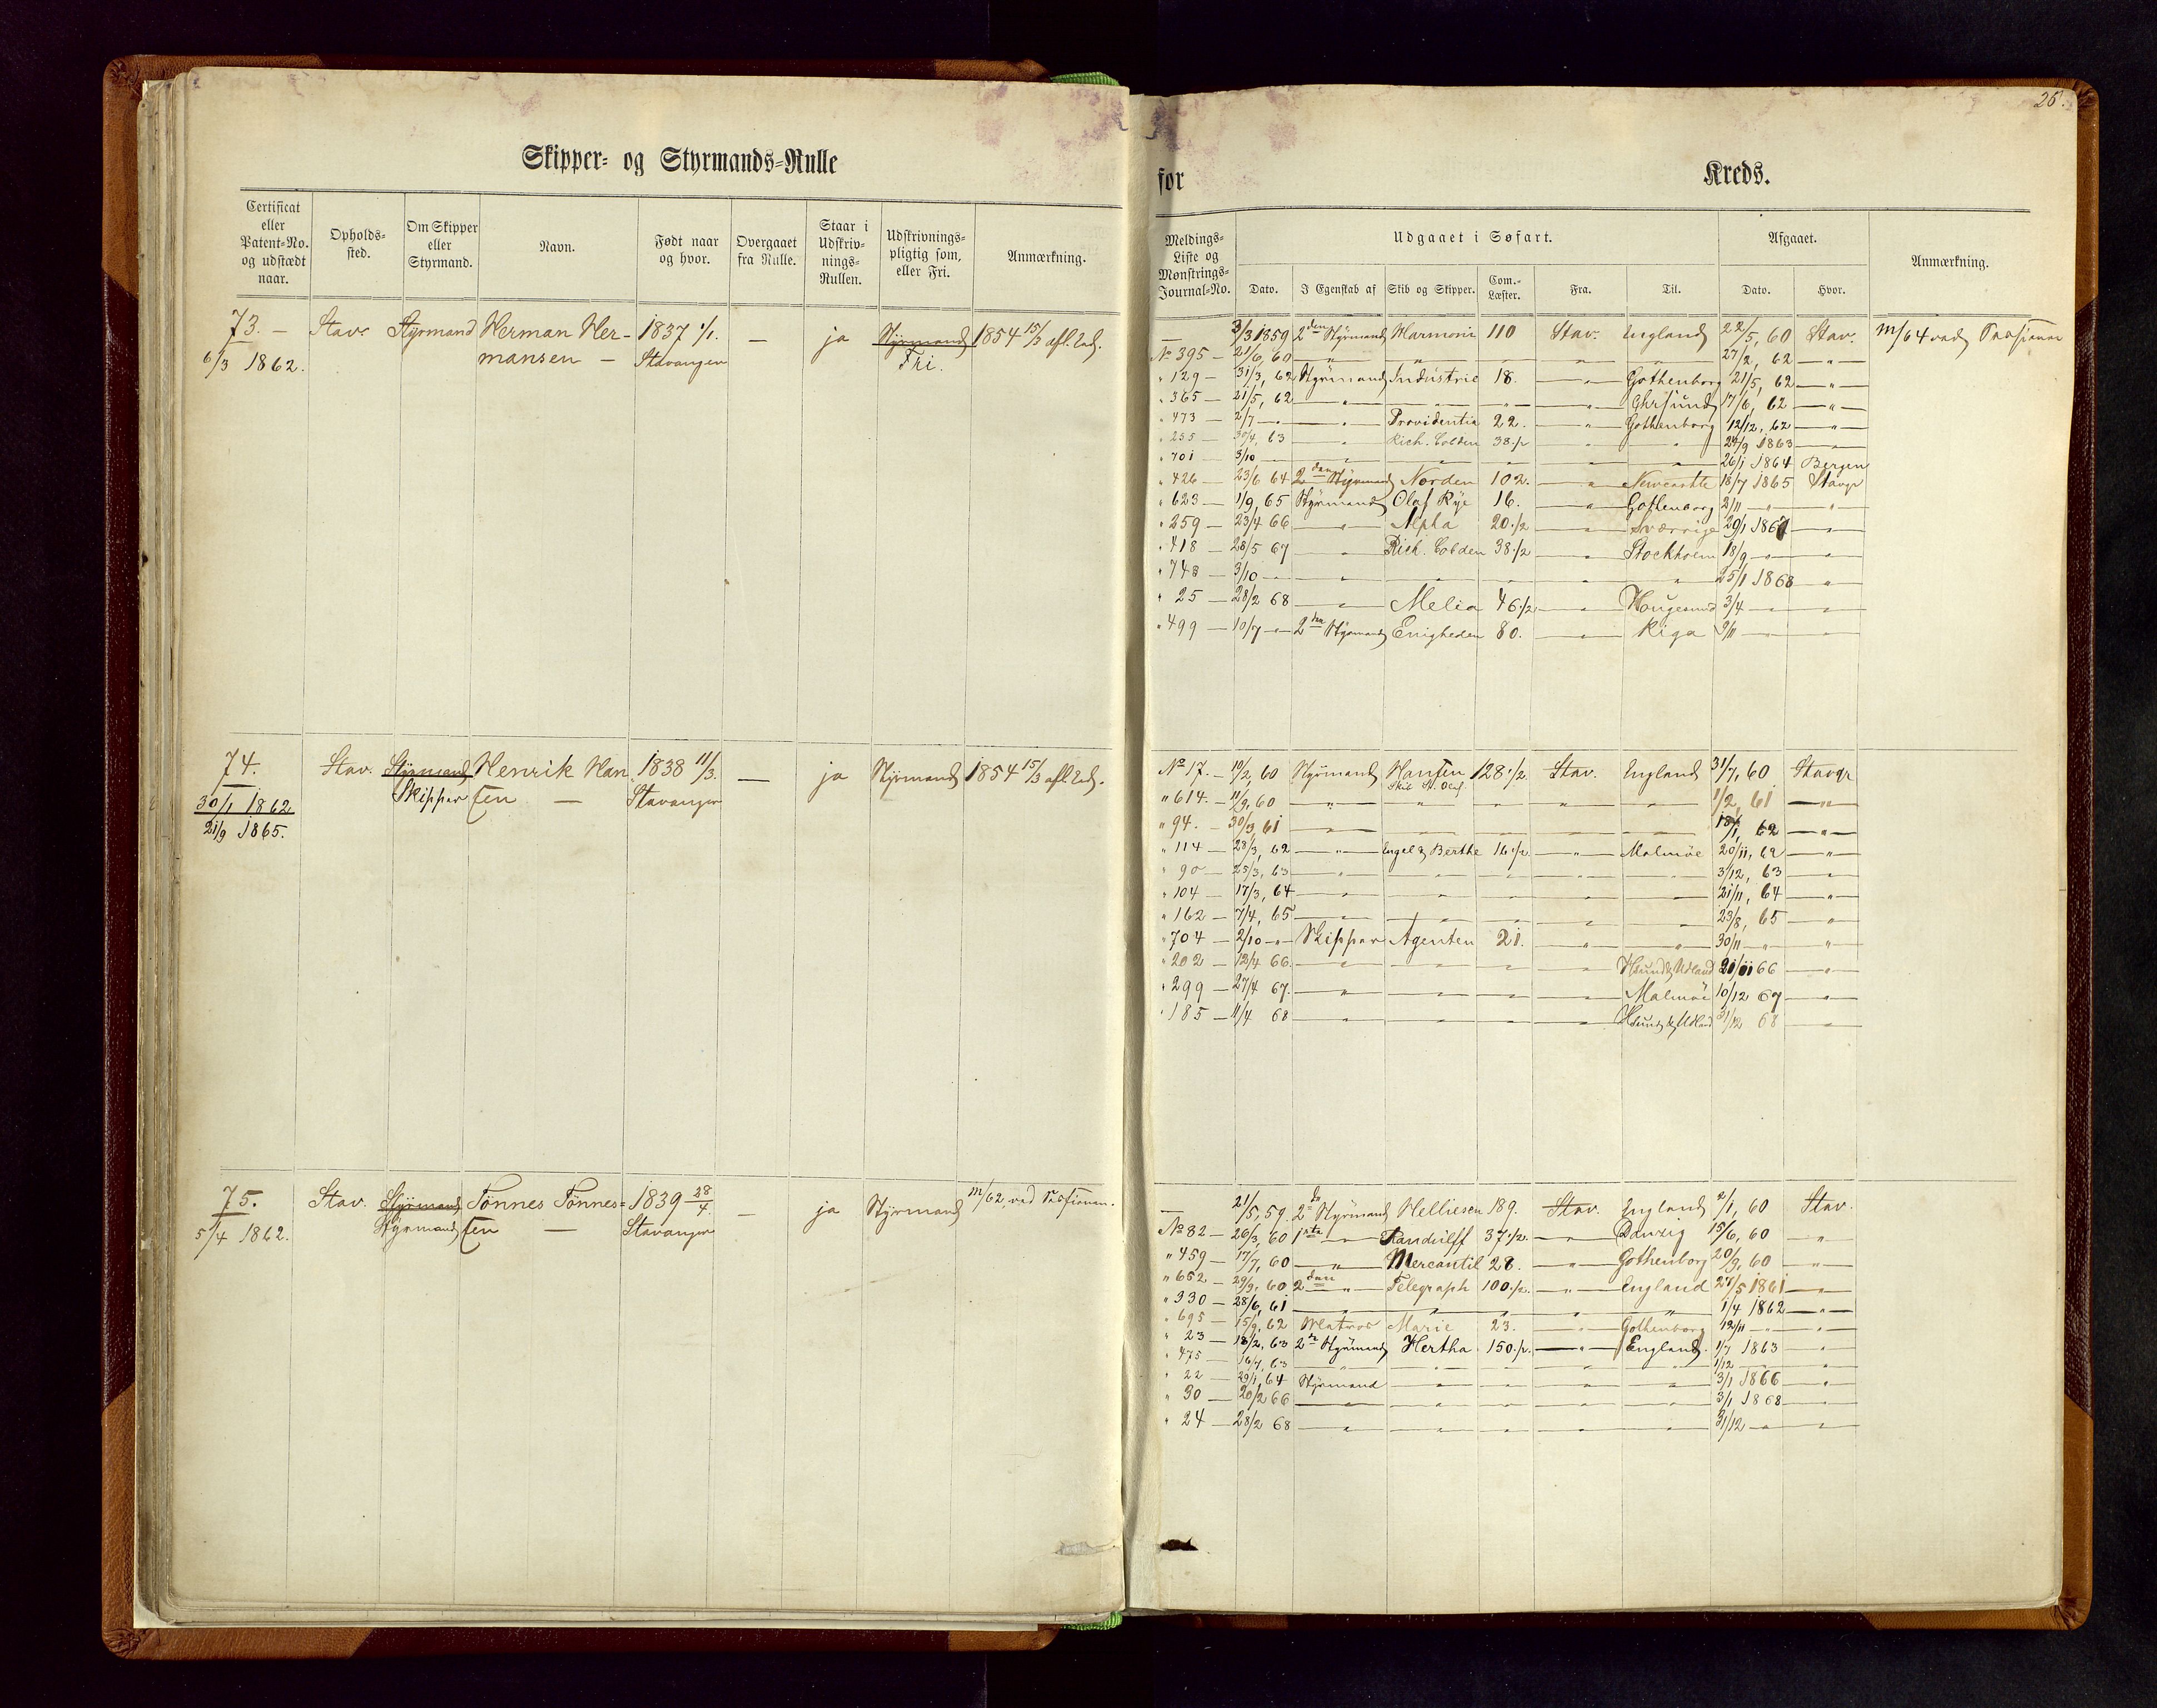 Skipper- og Styrmands-Rulle
Certificat eller Patent-No. og udstædt naar.
Opholds-sted.
Om Skipper eller Styrmand.
Navn.
Født naar og hvor.
Overgaaet fra Rulle.
Staar i Udskriv-nings-Rullen.
Udskrivnings-pligtig som, eller Fri.
Anmærkning.
73. — Stav. Styrmand Herman Her- 1837 1/1. — ja Styrmand 1854 15/3 afl. Ed.
6/3 1862. mansen — Stavanger Fri.
74. Stav. Styrmand Henrik Han- 1838 11/3. — ja Styrmand 1854 15/3 afl. Ed.
30/1 1862 Skipper sen — Stavanger
21/9 1865.
75. Stav. Styrmand Tönnes Tönnes= 1839 28/4. — ja Styrmand m/62, ved
5/4 1862. Styrmand sen — Stavanger
26.
for Kreds.
Meldings-Liste og Mønstrings-Journal-No.
Udgaaet i Søfart.
Dato.
I Egenskab af
Skib og Skipper.
Com.-Læster.
Fra.
Til.
Afgaaet.
Dato.
Hvor.
Anmærkning.
— 3/3 1859 2den Styrmand Harmonie 110 Stav. England 22/5, 60 Stav. m/64 ved
No 395 — 21/6, 60 — " — — " — — " — — " — — " — 27/2, 62 — " —
" 129 — 31/3, 62 Styrmand Industrie 18. — " — Gothenborg 21/5, 62 — " —
" 365 — 21/5, 62 — " — — " — — " — — " — 17/6, 62 — " —
" 473 — 2/7 — " — — " — Providentia 22. — " — Gothenborg 12/12, 62 — " —
" 255 — 30/4, 63 — " — Rich. Cobden 38 1/2 — " — " 24/9 1863 — " —
" 701 — 3/10 — — " — — " — — " — — " — 26/1 1864 Bergen
" 426 — 23/6 64 2den Styrmand Norden 102. — " — Newcastle 18/7 1865 Stavgr
" 623 — 1/9, 65 Styrmand Olaf Rye 16. — " — Gothenborg 2/11 — " — — " —
" 259 — 23/4 66 — " — Alpha 20 1/2 — " — Sverrige 29/1 1867 — " —
" 418 — 28/5 67 — " — Rich. Cobden 38 1/2 — " — Stockholm 18/9 — " — — " —
" 748 — 3/10 — " — — " — — " — — " — 25/1 1868 — " —
" 25 — 28/2 68 — " — Melia 46 1/2 — " — Haugesund 3/4 — " — — " —
" 499 — 10/7 — " — 2den Styrmand Enigheden 80. — " — Riga 9/11 — " — — " —
No 17. — 10/2, 60 Styrmand Hansen 128 1/2. Stav. England 31/7, 60 Stavgr
Skib St. Oluf
" 614. — 11/9, 60 — " — — " — — " — — " — — " — 1/2, 61 — " —
" 94. — 30/3, 61 — " — — " — — " — — " — 18/1, 62 — " —
" 114 — 28/3, 62 — " — Engel & Berthe 16 1/2 — " — Malmöe 20/11, 62 — " —
" 90 — 25/3, 63 — " — — " — — " — — " — 3/12, 63 — " —
" 104 — 17/3, 64 — " — — " — — " — — " — 21/11, 64 — " —
" 162 — 7/4, 65 — " — — " — — " — — " — 23/8, 65 — " —
" 704 — 2/10 — " — Skipper Agenten 21. — " — — " — 30/11 — " — — " —
" 202 — 12/4 66. — " — — " — — " — — " — Hsund & Udland 21/11 66 — " —
" 299 — 27/4 67. — " — — " — — " — — " — Malmöe 10/12 67 — " —
" 185 — 11/4 68 — " — — " — — " — — " — Hsund & Udland 31/12 68 — " —
— 21/5, 59. 2de Styrmand Helliesen 189. Stav. England 2/1, 60 Stav.
No 82 — 26/3, 60 1ste — " — Randulff 37 1/2. — " — Danzig 15/6, 60 — " —
" 459 — 17/7, 60 — " — Mercantil 28. — " — Gothenborg 20/9, 60 — " —
" 652 — 29/9, 60 2den — " — Telegraph 100 1/2. — " — England 28/5 1861 — " —
" 330 — 28/6, 61 — " — — " — — " — — " — 1/4 1862 — " —
" 695 — 15/9, 62 Matros Marie 23. — " — Gothenborg 12/11 — " — — " —
" 23 — 18/2, 63 2de Styrmand Hertha 150 1/2. — " — England. 1/7 1863 — " —
" 475 — 16/7, 63 — " — — " — — " — — " — 1/12 — " — — " —
" 22 — 29/1, 64 Styrmand — " — — " — — " — 3/1 1866 — " —
" 30 — 20/2 66 — " — — " — — " — — " — 3/1 1868 — " —
" 24 — 28/2 68 — " — — " — — " — — " — 31/12 — " — — " —